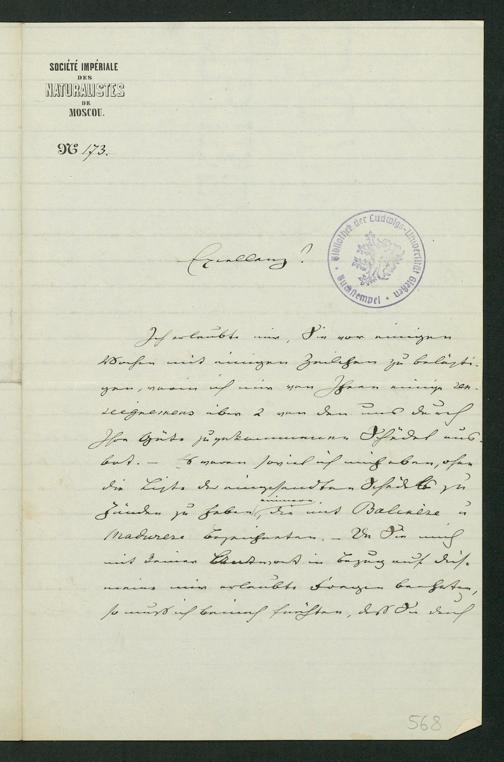 SOCIÉTÉ IMPÉRIALE
DES
NATURALISTES
DE
MOSCOU.
No 173.
Bibliothek der Ludwigs-Universität Gießen
Buchstempel
Excellenz!
Ich erlaubte mir, Sie vor einigen
Wochen mit einigen Zeilchen zu belästi-
gen, worin ich mir von Ihnen einige ren-
seignemens über 2 von den uns durch
Ihre Güte zugekommenen Schädel aus-
bat. – Es waren soviel ich mich
die Liste der eingesandten Schädel zu
Händen zu haben, die mit Balinese u
Madurese bezeichneten. – Da Sie mich
mit keiner Antwort in Bezug auf diese
meine mir erlaubte Fragen beehrten,
so muss ich beinah fürchten, dass Sie durch
568